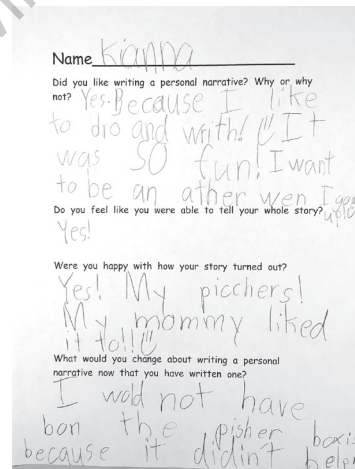 Name Kianna
Did you like writing a personal narrative? Why or why
not? Yes. Because I like
to dro and writh! It
was SO fun! I want
to be an ather wen I
Do you feel like you were able to tell your whole story?
Yes!
Were you happy with how your story turned out?
Yes! My picchers!
My mommy liked
it to!!
What would you change about writing a personal
narrative now that you have written one?
I wold not have
bon the pisher boxis
because it didint